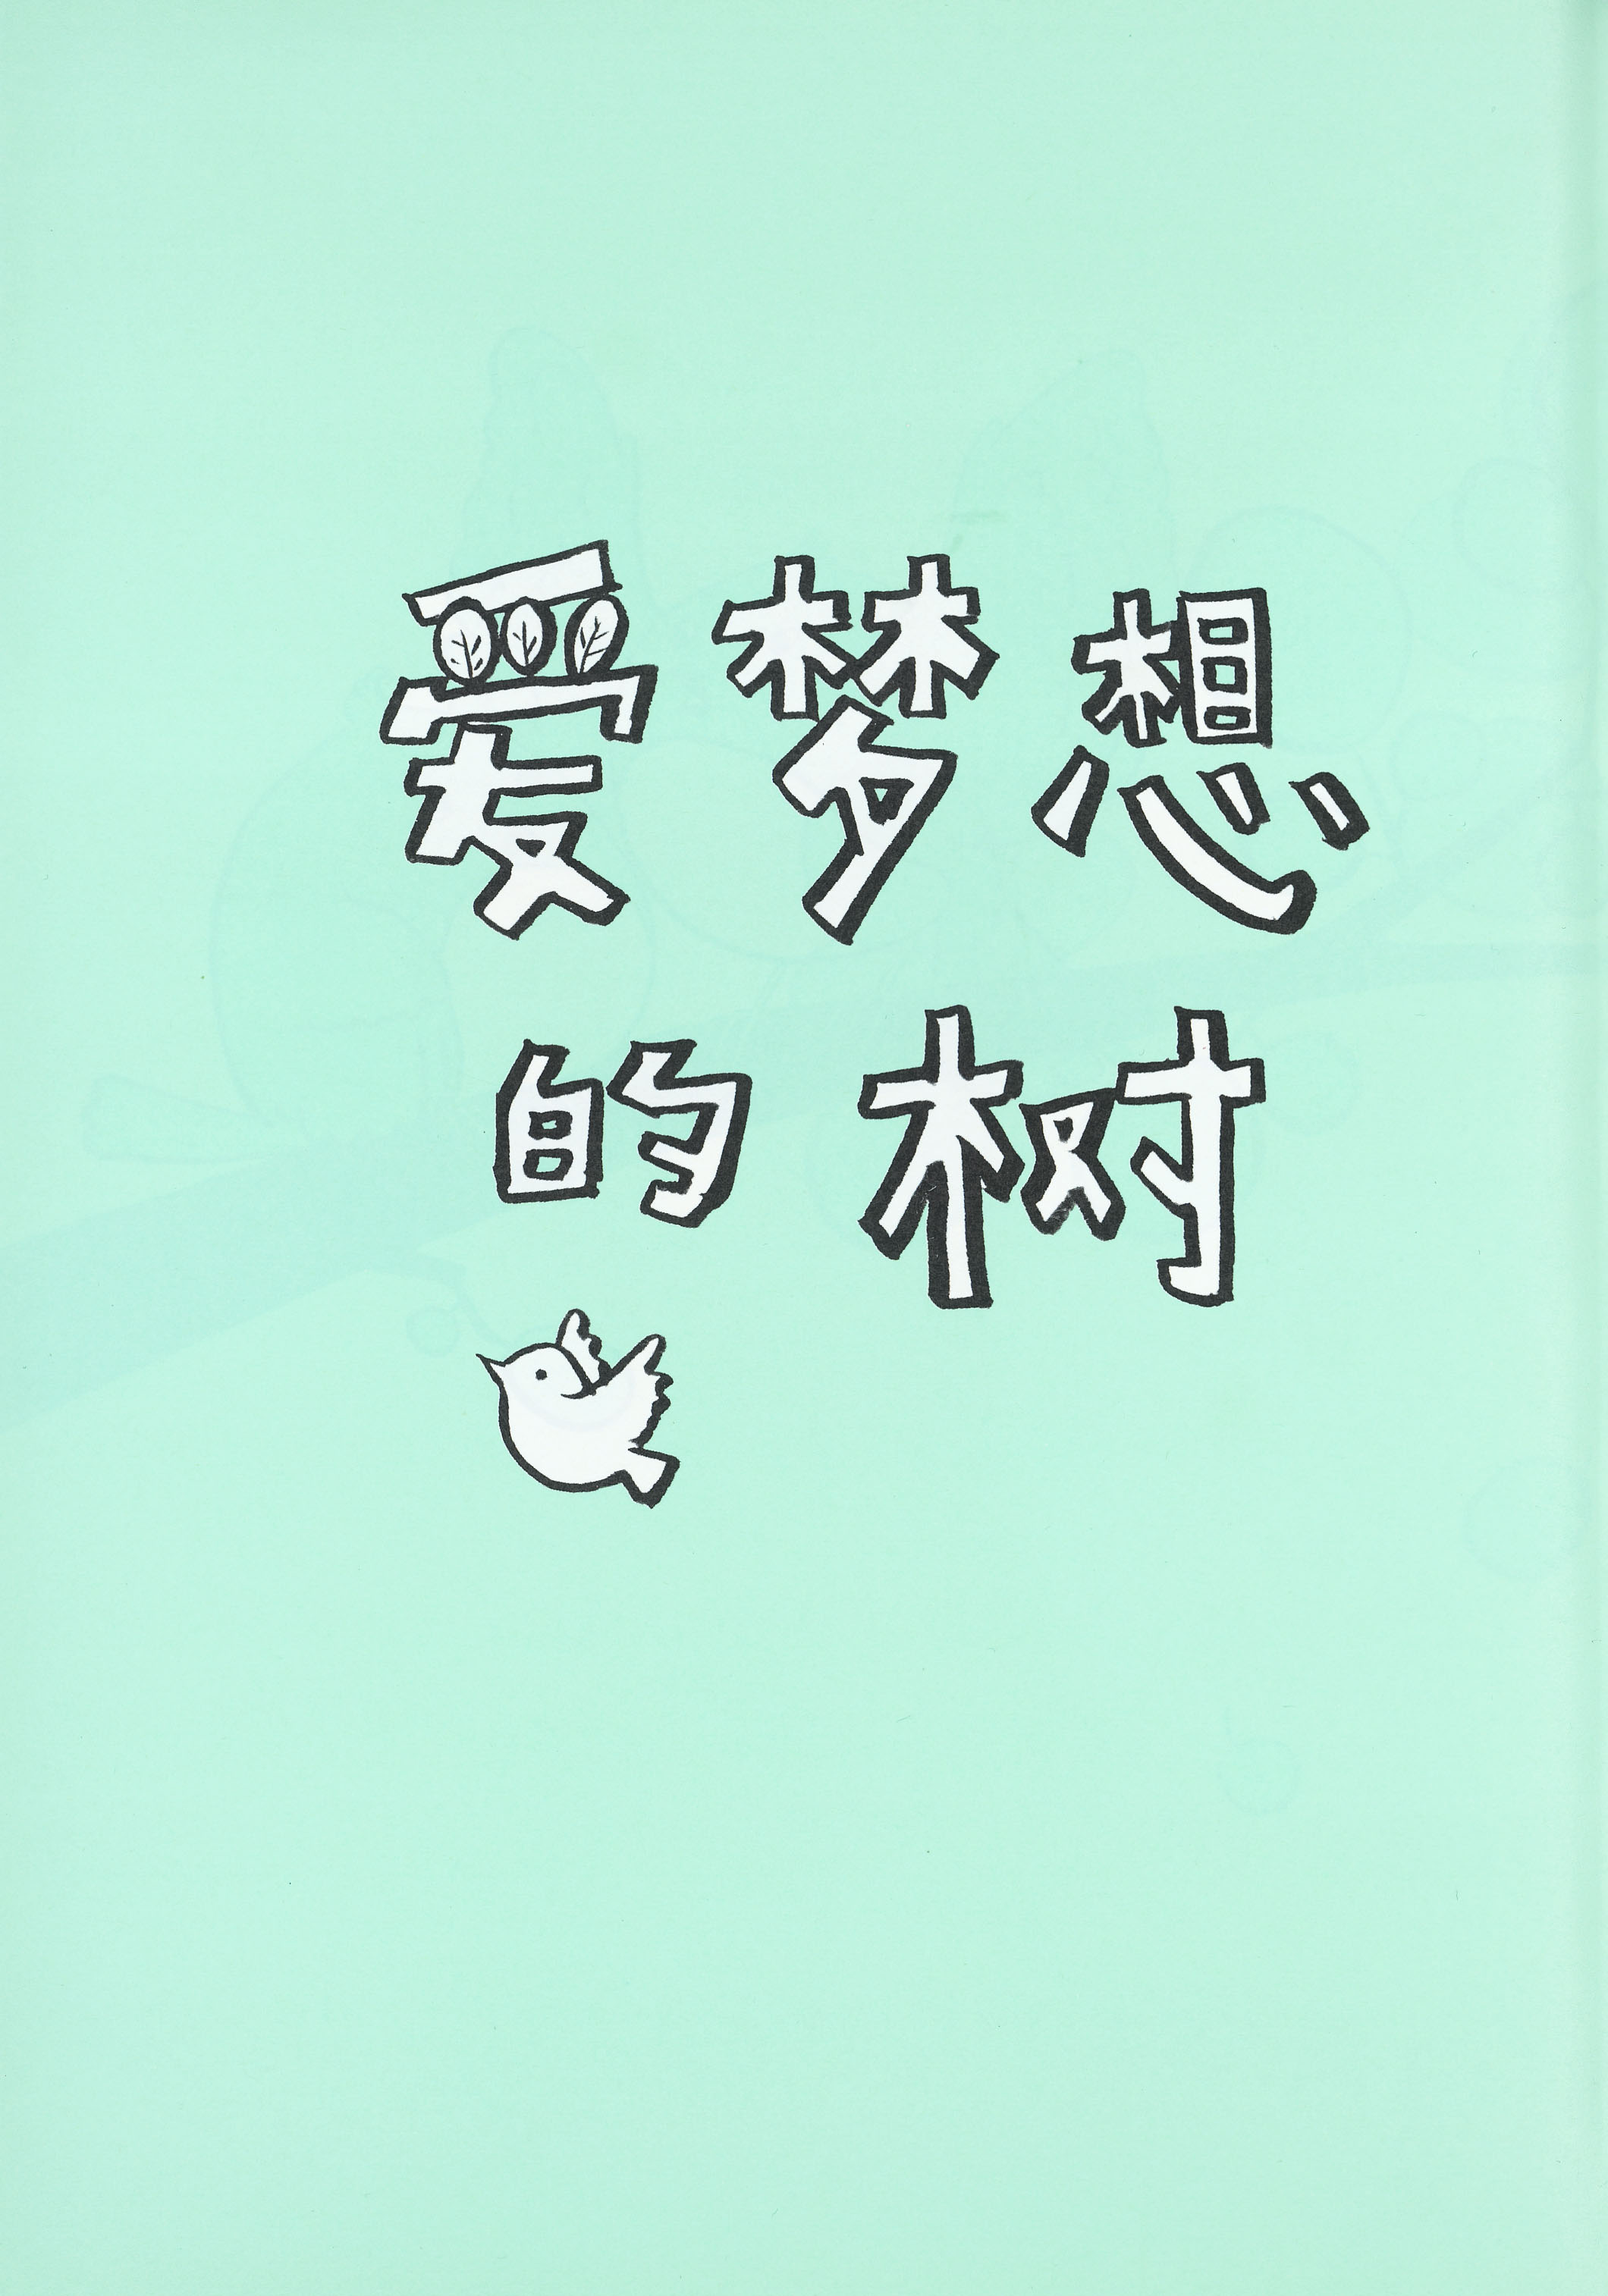 爱梦想
的树